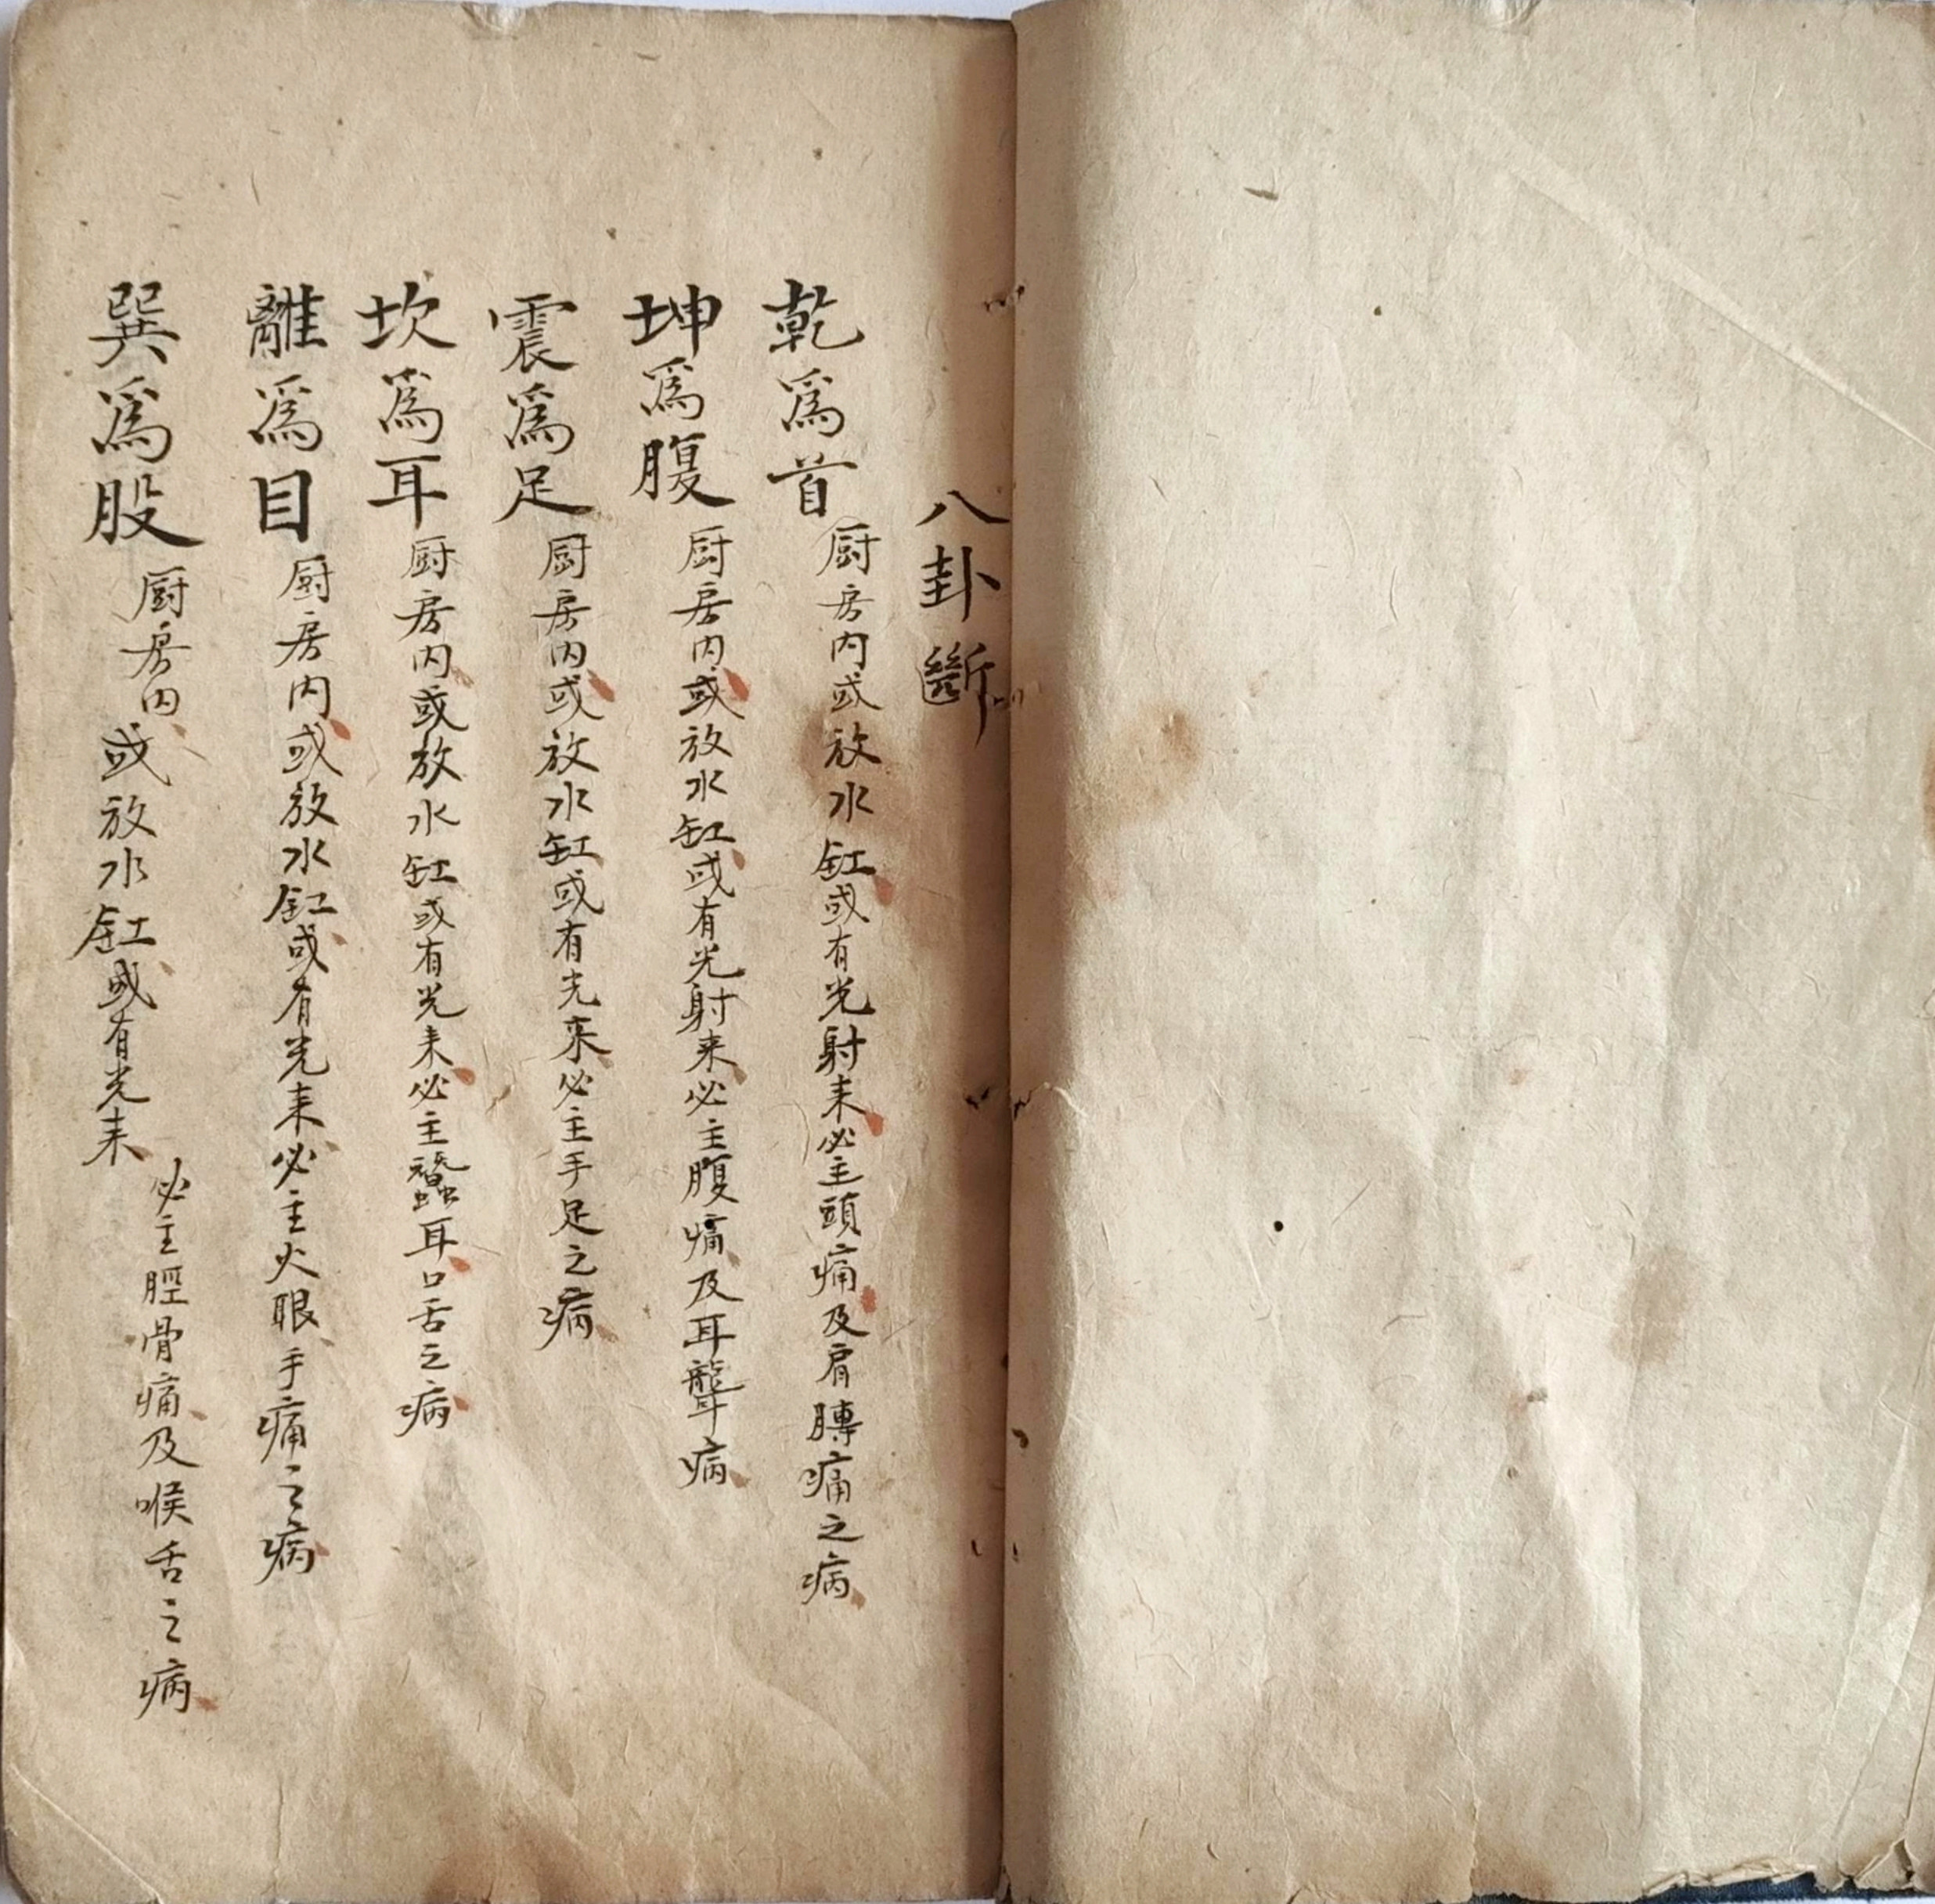 八卦斷
乾爲首 厨房内或放水缸或有光射来必主頭痛及肩膊痛之病
坤爲腹 厨房内或放水缸或有光射来必主腹痛及耳聾病
震爲足 厨房内或放水缸或有光来必主手足之病
坎爲耳 厨房内或放水缸或有光来必主蠶耳口舌之病
離爲目 厨房内或放水缸或有光来必主火眼手痛之病
巽爲股 厨房内或放水缸或有光来必主脛骨痛及喉舌之病